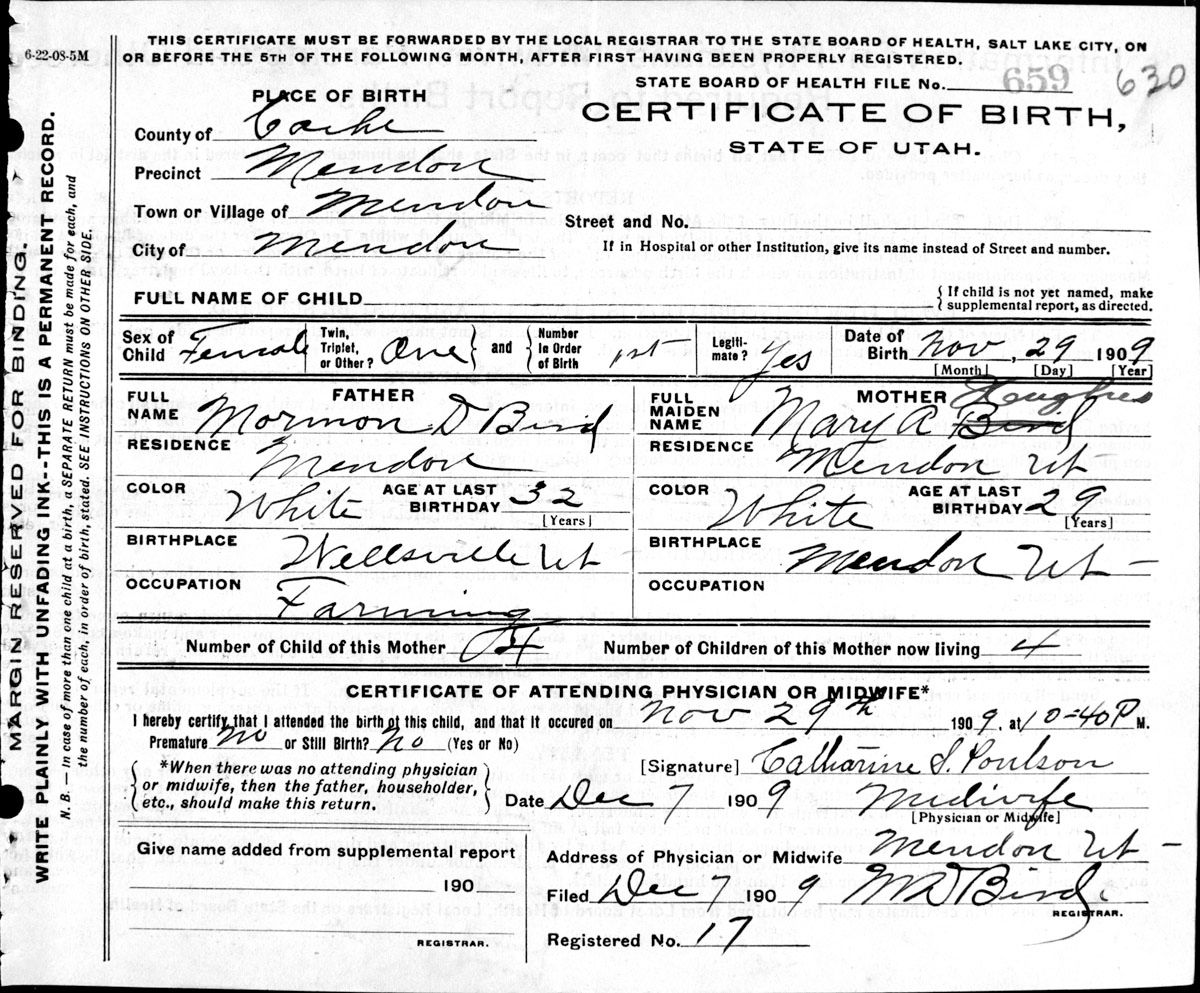 6-22-08-5M
THIS CERTIFICATE MUST BE FORWARDED BY THE LOCAL REGISTRAR TO THE STATE BOARD OF HEALTH, SALT LAKE CITY, ON
OR BEFORE THE 5TH OF THE FOLLOWING MONTH, AFTER FIRST HAVING BEEN PROPERLY REGISTERED.
STATE BOARD OF HEALTH FILE No. 659 630
PLACE OF BIRTH
CERTIFICATE OF BIRTH,
STATE OF UTAH.
County of Cache
Precinct Mendon
Town or Village of Mendon
Street and No.
City of Mendon
If in Hospital or other Institution, give its name instead of Street and number.
FULL NAME OF CHILD
{ If child is not yet named, make
supplemental report, as directed.
Sex of Child Female
Twin, Triplet, or Other? One } and { Number In Order of Birth 1st
Legitimate? Yes
Date of Birth Nov, 29 1909
[Month] [Day] [Year]
FATHER
FULL NAME Mormon D Bird
RESIDENCE Mendon
COLOR White AGE AT LAST BIRTHDAY 32
[Years]
BIRTHPLACE Wellsville Ut
OCCUPATION Farming
MOTHER
FULL MAIDEN NAME Mary A Bird
RESIDENCE Mendon Ut
COLOR White AGE AT LAST BIRTHDAY 29
[Years]
BIRTHPLACE Mendon Ut -
OCCUPATION
Number of Child of this Mother 4 Number of Children of this Mother now living 4
CERTIFICATE OF ATTENDING PHYSICIAN OR MIDWIFE*
I hereby certify that I attended the birth of this child, and that it occured on Nov 29th 1909, at 10-40 P M.
Premature No or Still Birth? No (Yes or No)
[Signature] Catharine S. Poulson
{ *When there was no attending physician
or midwife, then the father, householder,
etc., should make this return. }
Date Dec 7 1909 Midwife
[Physician or Midwife]
Give name added from supplemental report
190
REGISTRAR.
Address of Physician or Midwife Mendon Ut -
Filed Dec 7 1909 M D Bird.
REGISTRAR.
Registered No. 17
MARGIN RESERVED FOR BINDING.
WRITE PLAINLY WITH UNFADING INK--THIS IS A PERMANENT RECORD.
N. B. — In case of more than one child at a birth, a SEPARATE RETURN must be made for each, and
the number of each, in order of birth, stated. SEE INSTRUCTIONS ON OTHER SIDE.